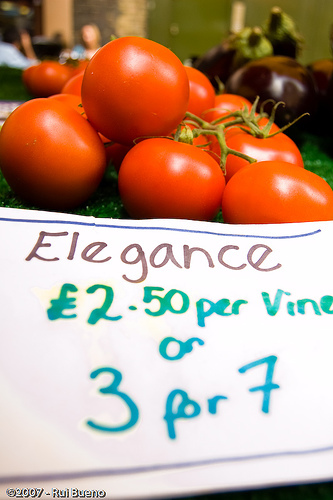 Elegance
£2.50 per Vine
or
3 for 7
©2007 - Rui Bueno